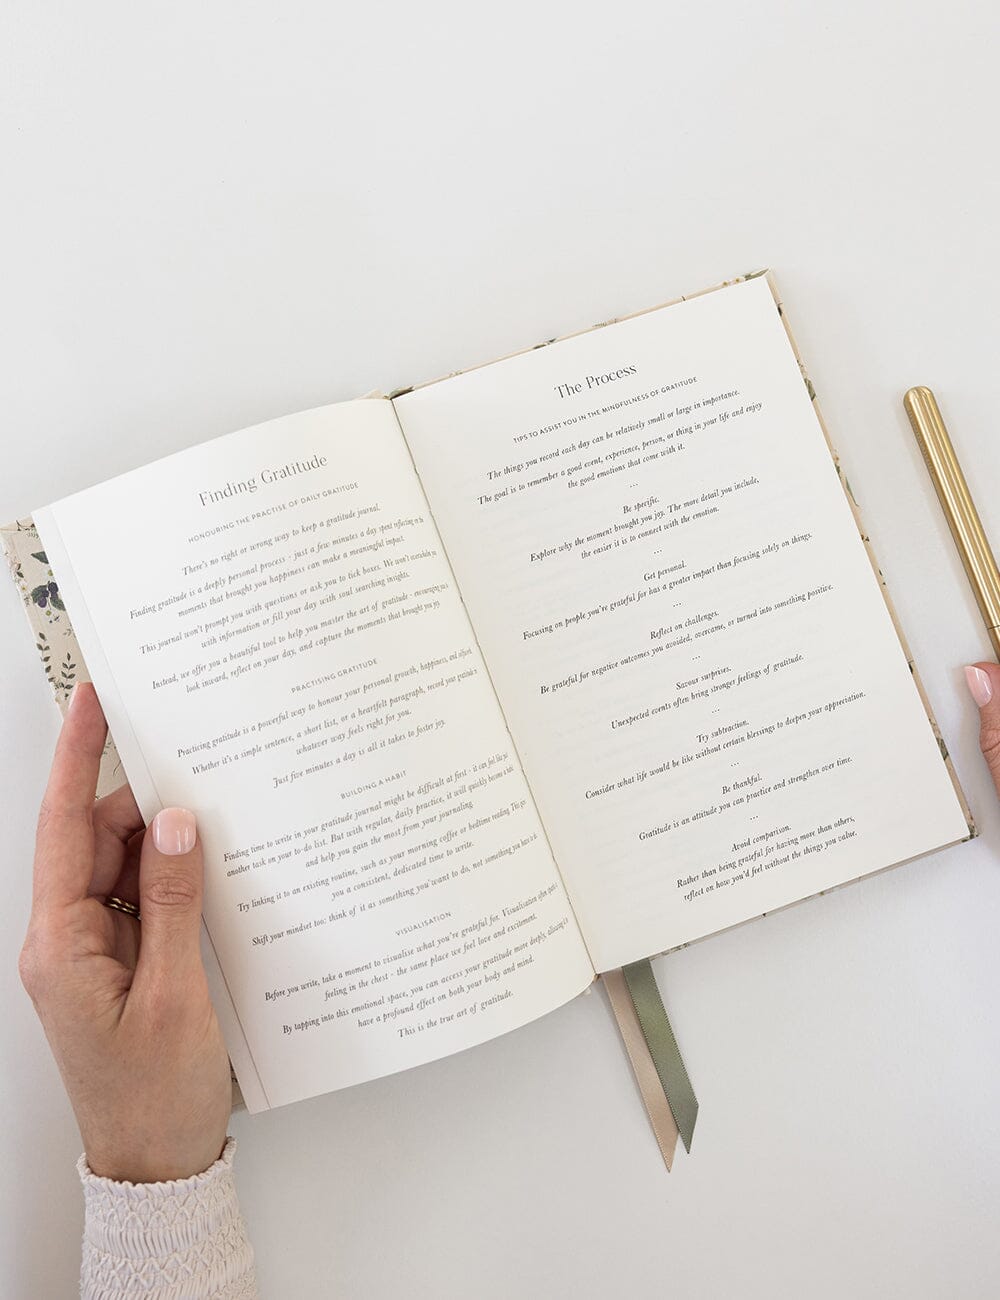 Finding Gratitude
HONOURING THE PRACTISE OF DAILY GRATITUDE
There's no right or wrong way to keep a gratitude journal.
Finding gratitude is a deeply personal process - just a few minutes a day spent reflecting on the
moments that brought you happiness can make a meaningful impact.
This journal won't prompt you with questions or ask you to tick boxes. We won't overwhelm you
with information or fill your day with soul searching insights.
Instead, we offer you a beautiful tool to help you master the art of gratitude - encouraging you to
look inward, reflect on your day, and capture the moments that brought you joy.
PRACTISING GRATITUDE
Practicing gratitude is a powerful way to honour your personal growth, happiness, and
Whether it's a simple sentence, a short list, or a heartfelt paragraph, record your gratitude
whatever way feels right for you.
Just five minutes a day is all it takes to foster joy.
BUILDING A HABIT
Finding time to write in your gratitude journal might be difficult at first - it can feel like just
another task on your to-do list. But with regular, daily practice, it will quickly become a habit
and help you gain the most from your journaling.
Try linking it to an existing routine, such as your morning coffee or bedtime reading. This gives
you a consistent, dedicated time to write.
Shift your mindset too: think of it as something you want to do, not something you have to do.
VISUALISATION
Before you write, take a moment to visualise what you're grateful for. Visualisation often
feeling in the chest - the same place we feel love and excitement.
By tapping into this emotional space, you can access your gratitude more deeply, allowing it
have a profound effect on both your body and mind.
This is the true art of gratitude.
The Process
TIPS TO ASSIST YOU IN THE MINDFULNESS OF GRATITUDE
The things you record each day can be relatively small or large in importance.
The goal is to remember a good event, experience, person, or thing in your life and enjoy
the good emotions that come with it.
...
Be specific.
Explore why the moment brought you joy. The more detail you include,
the easier it is to connect with the emotion.
...
Get personal.
Focusing on people you're grateful for has a greater impact than focusing solely on things.
...
Reflect on challenges.
Be grateful for negative outcomes you avoided, overcame, or turned into something positive.
...
Savour surprises.
Unexpected events often bring stronger feelings of gratitude.
...
Try subtraction.
Consider what life would be like without certain blessings to deepen your appreciation.
...
Be thankful.
Gratitude is an attitude you can practice and strengthen over time.
...
Avoid comparison.
Rather than being grateful for having more than others,
reflect on how you'd feel without the things you value.